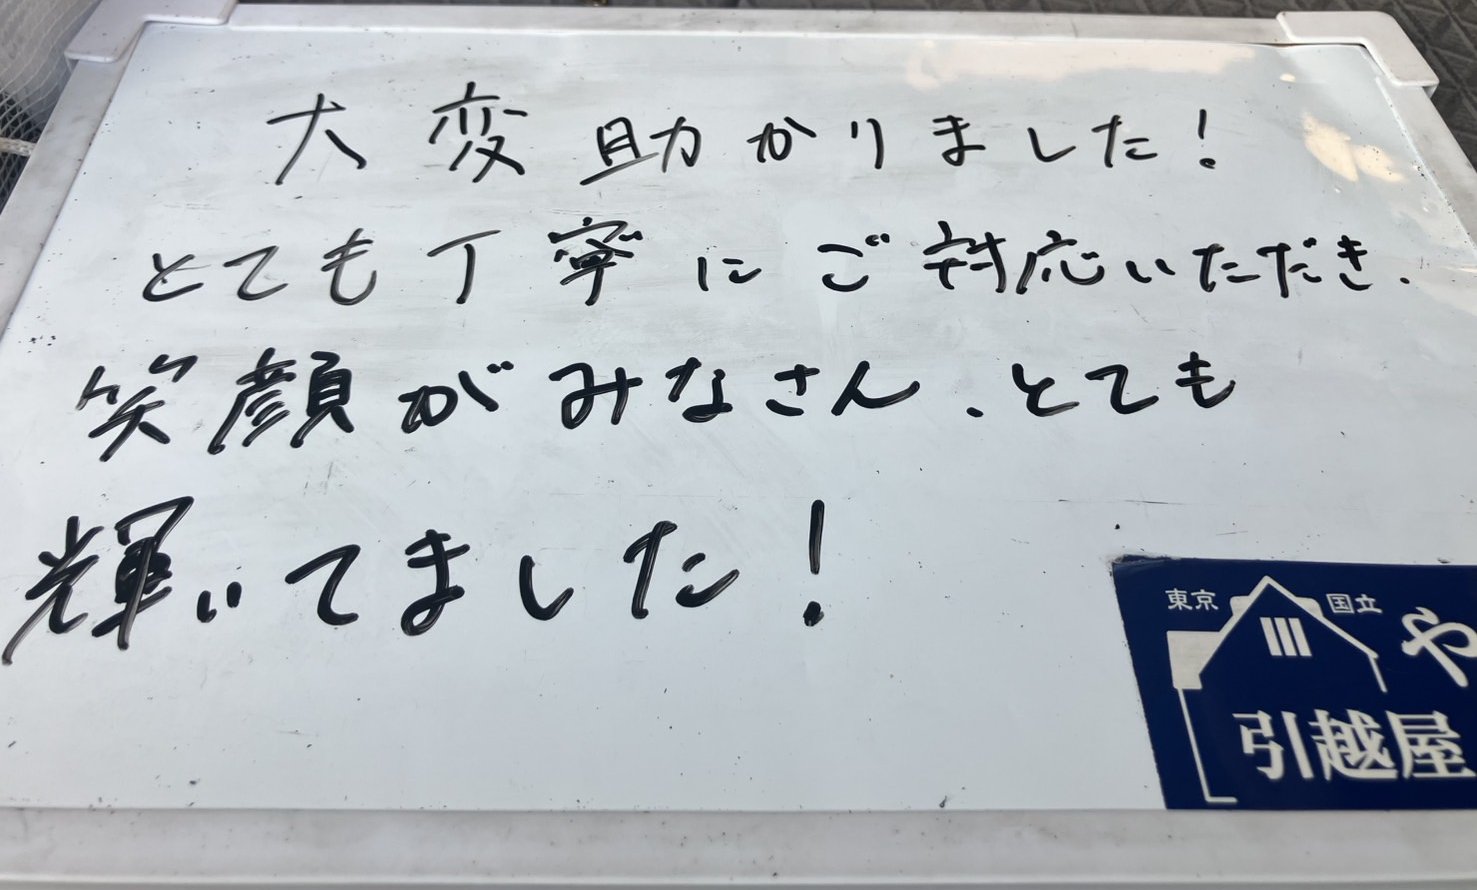 大変助かりました!
とても丁寧にご対応いただき、
笑顔がみなさん、とても
輝いてました!
東京 国立 や
引越屋